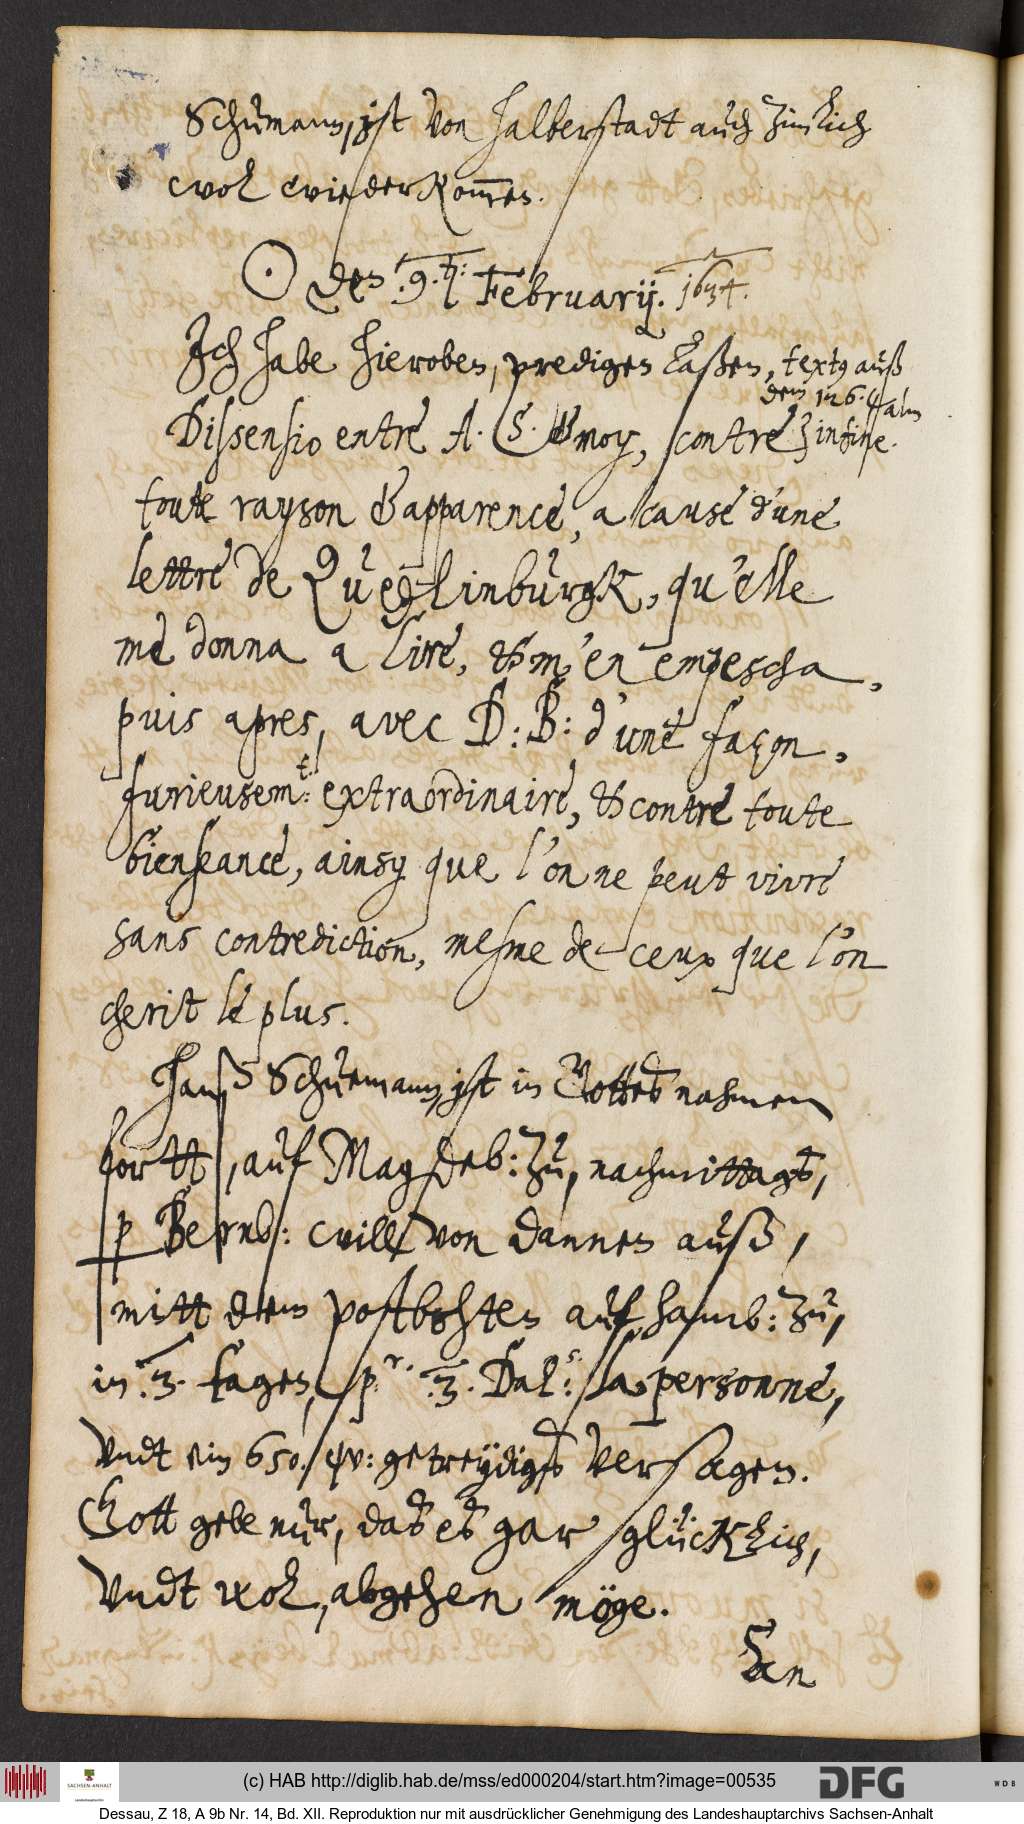 Schumann, ist von halberstadt auch zimlich
wol wiederkom̅en.
☉ den 9. ten: February. 1634.
Ich habe hieroben, predigen laßen, textus auß
dem 126. Psalm
Dissensio entre A. S. & moy, contre in fine.
toute rayson & apparence, a cause d'une
lettre de Quedlinburgk, qu'elle
me donna a lire, & m'en empescha,
puis apres, avec D: B: d'une façon,
furieusem.t: extraordinaire, & contre toute
bienseance, ainsy que l'on ne peut vivre
sans contrediction, mesme de ceux que l'on
cherit le plus.
Hanß Schuemann, ist in Gottes nahmen
fortt, auf Magdeb: zu, nachmittags,
p Bernb: will von dannen auß,
mitt dem postbohten auf hamb: zu,
in .3. tagen, pr. .3. Dal: la personne,
Vndt ein 650. getreydigs Versagen.
Gott gebe nur, das es gar glücklich,
Vndt wol, abgehen möge.
(c) HAB http://diglib.hab.de/mss/ed000204/start.htm?image=00535
SACHSEN-ANHALT
DFG
WDB
Dessau, Z 18, A 9b Nr. 14, Bd. XII. Reproduktion nur mit ausdrücklicher Genehmigung des Landeshauptarchivs Sachsen-Anhalt